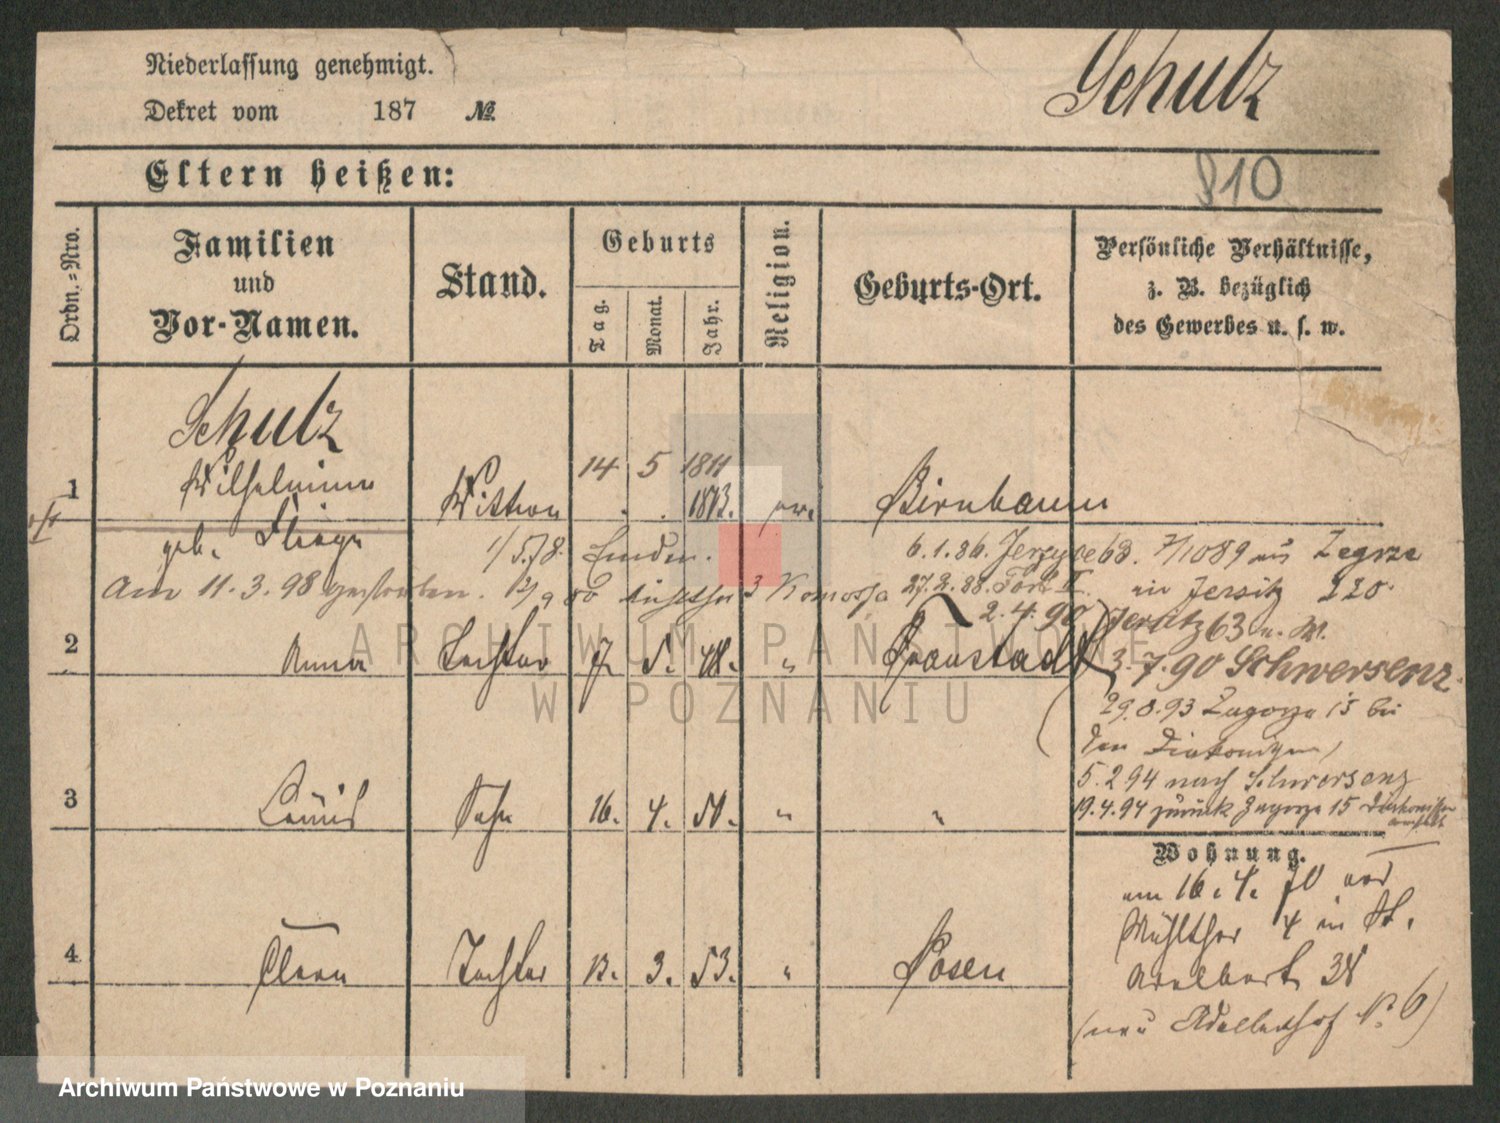 Niederlassung genehmigt.
Schulz
Dekret vom 187 №
Eltern heißen:
810
Ordn.=Nro.
Familien
und
Vor-Namen.
Stand.
Geburts
Tag.
Monat.
Jahr.
Religion.
Geburts-Ort.
Persönliche Verhältnisse,
z. B. bezüglich
des Gewerbes u. s. w.
Schulz
1 Wilhelmine Wittwe 14 5 1811 1813. ev. Birnbaum
geb. 1/5.78. Linden. 6.1.86. Jerzyce 63. 7/10 89 aus Zegrze
Am 11.3.98 gestorben. 3 Komossa 27.2.88. Fort II. in Jersitz 220.
2.4.90 Jersitz 63 n. W.
2 Anna Tochter 7. 5. 48. " Fraustadt
3.7.90 Schwersenz.
29.8.93 Zagorze 15 bei
den Diakonissen
5.2.94 nach Schwersenz
3 Louis Sohn 16. 4. 50. " "
19.4.94 zurück Zagorze 15 Diakonissen
anstalt
Wohnung.
am 16.4.70 vor
Mühlthor 4 in St.
Adalbert 38
4 Clara Tochter 13. 3. 53. " Posen
(neu Adalberthof № 6)
ARCHIWUM PAŃSTWOWE
W POZNANIU
Archiwum Państwowe w Poznaniu